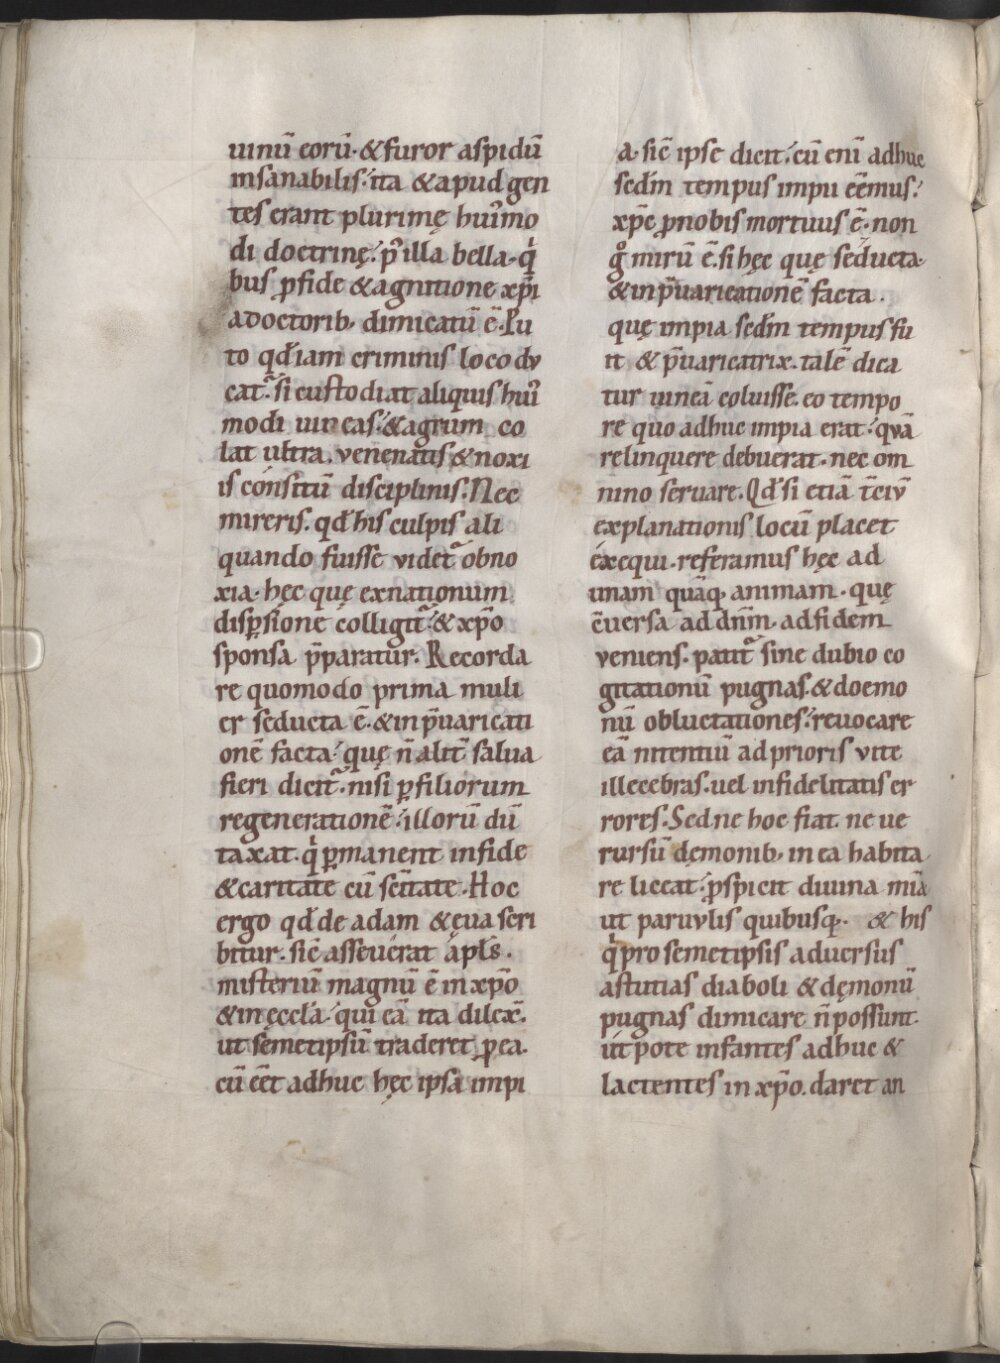 uinũ eorũ. &furor aspidũ
insanabilis: ita &apud gen
tes erant plurimę hui᷒mo
di doctrinę: ꝑ illa bella. q̇
bus ꝓfide &agnitione xp̃i
adoctorib; dimicatũ ẽ. Pu
to qd̃iam criminis loco du
cat᷑. si custodiat aliquis hui᷒
modi uineas: &agrum co
lat ultra. venenatis &noxi
is consitũ disciplinis. Nec
mireris. qd̃ his culpis ali
quando fuisse videt᷑ obno
xia. hęc quę exnationum
disꝑsione colligit᷑: &xp̃o
sponsa p̃paratur. Recorda
re quomodo prima muli
er seducta ẽ. &inp̃uaricati
onẽ facta: quę ñ alit̃ salua
fieri dicit᷑. nisi ꝑfiliorum
regenerationẽ: illorũ dũ
taxat. q̇ ꝑmanent infide
&caritate cũ sc̃itate. Hoc
ergo qd̃ de adam &ęua scri
bitur. sic̃ asseuerat apl̃s.
misteriũ magnũ ẽ in xp̃o
&inęccl̃a: qui eã ita dilex̃.
ut semetipsũ traderet ꝓea.
cũ eẽt adhuc hęc ipsa impi
a. sic̃ ipse dicit: cũ enĩ adhuc
scd̃m tempus impii eẽmus:
xp̃c ꝓnobis mortuus ẽ. non
g̊ mirũ ẽ. si hęc quę seducta
&inp̃uaricationẽ facta.
quę impia scd̃m tempus fu
it & p̃uaricatrix. talẽ dica
tur uineã coluisse. eo tempo
re quo adhuc impia erat: quã
relinquere debuerat. nec om
nino seruare. Qd̃ si etiã t̃ciũ
explanationis locũ placet
exequi. referamus hęc ad
unam quãq; animam. quę
c̃uersa ad dñm. adfidem
veniens. patit᷑ sine dubio co
gitationũ pugnas. &doemo
nũ obluctationes: reuocare
eã nitentiũ ad prioris vite
illecebras. uel infidelitatis er
rores. Sed ne hoc fiat. ne ue
rursũ dęmonib; in ea habita
re liceat: ꝓspicit diuina mĩa
ut paruulis quibusq;. & his
q̇ pro semetipsis aduersus
astutias diaboli &dęmonũ
pugnas dimicare ñ possunt.
ut pote infantes adhuc &
lactentes in xp̃o. daret an